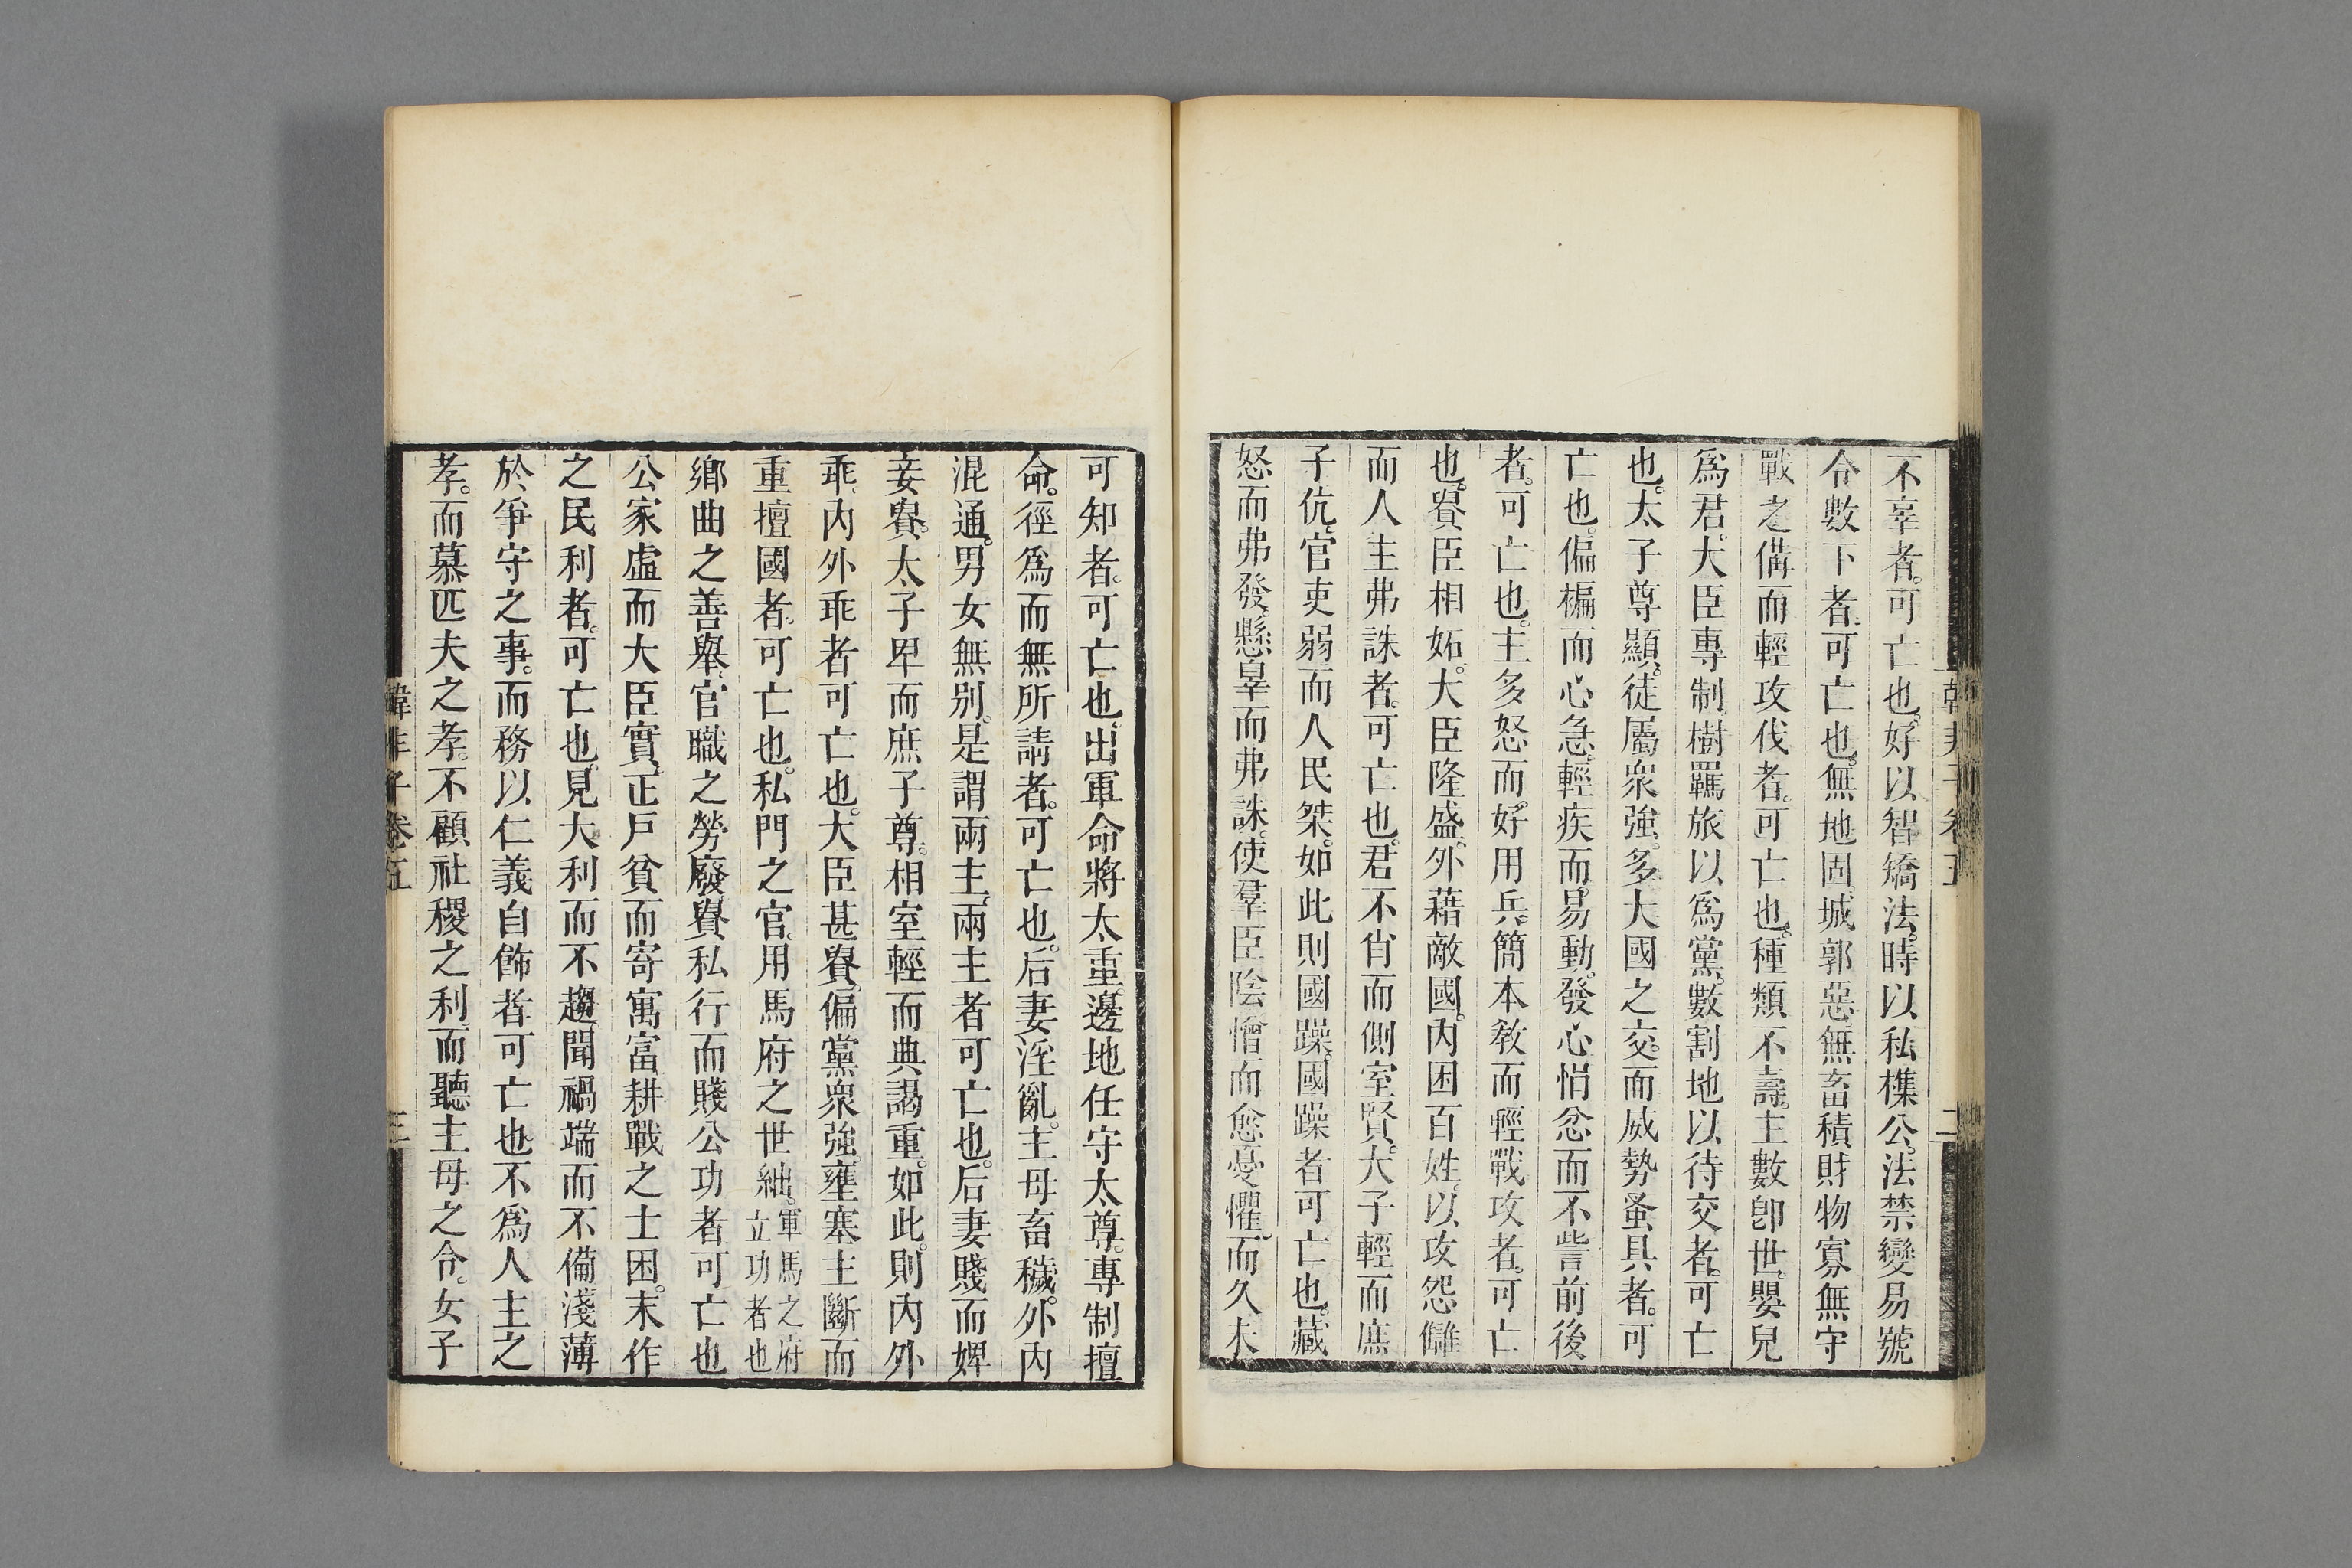 不辜者。可亡也。好以智矯法。時以私襍公。法禁變易號
令數下者。可亡也。無地固。城郭惡。無畜積。財物寡。無守
戰之備而輕攻伐者。可亡也。種類不壽。主數卽世。嬰兒
爲君。大臣專制。樹羈旅以爲黨。數割地以待交者。可亡
也。太子尊顯。徒屬衆強。多大國之交。而威勢蚤具者。可
亡也。偏褊而心急。輕疾而易動。發心悁忿而不訾前後
者。可亡也。主多怒而好用兵。簡本敎而輕戰攻者。可亡
也。貴臣相妬。大臣隆盛。外藉敵國。內困百姓。以攻怨讎
而人主弗誅者。可亡也。君不肖而側室賢。太子輕而庶
子伉。官吏弱而人民桀。如此則國躁。國躁者可亡也。藏
怒而弗發。懸辠而弗誅。使羣臣陰憎而愈憂懼。而久未
韓非子卷五
二
可知者。可亡也。出軍命將太重。邊地任守太尊。專制擅
命。徑爲而無所請者。可亡也。后妻淫亂。主母畜穢。外內
混通。男女無別。是謂兩主。兩主者可亡也。后妻賤而婢
妾貴。太子卑而庶子尊。相室輕而典謁重。如此。則內外
乖。內外乖者可亡也。大臣甚貴。偏黨衆強。壅塞主斷而
重擅國者。可亡也。私門之官。用馬府之世絀。軍馬之府立功者也
鄉曲之善舉。官職之勞廢。貴私行而賤公功者可亡也
公家虛而大臣實。正戶貧而寄寓富。耕戰之士困。末作
之民利者。可亡也。見大利而不趨。聞禍端而不備。淺薄
於爭守之事。而務以仁義自飾者可亡也。不爲人主之
孝。而慕匹夫之孝。不顧社稷之利。而聽主母之令。女子
韓非子卷五
三